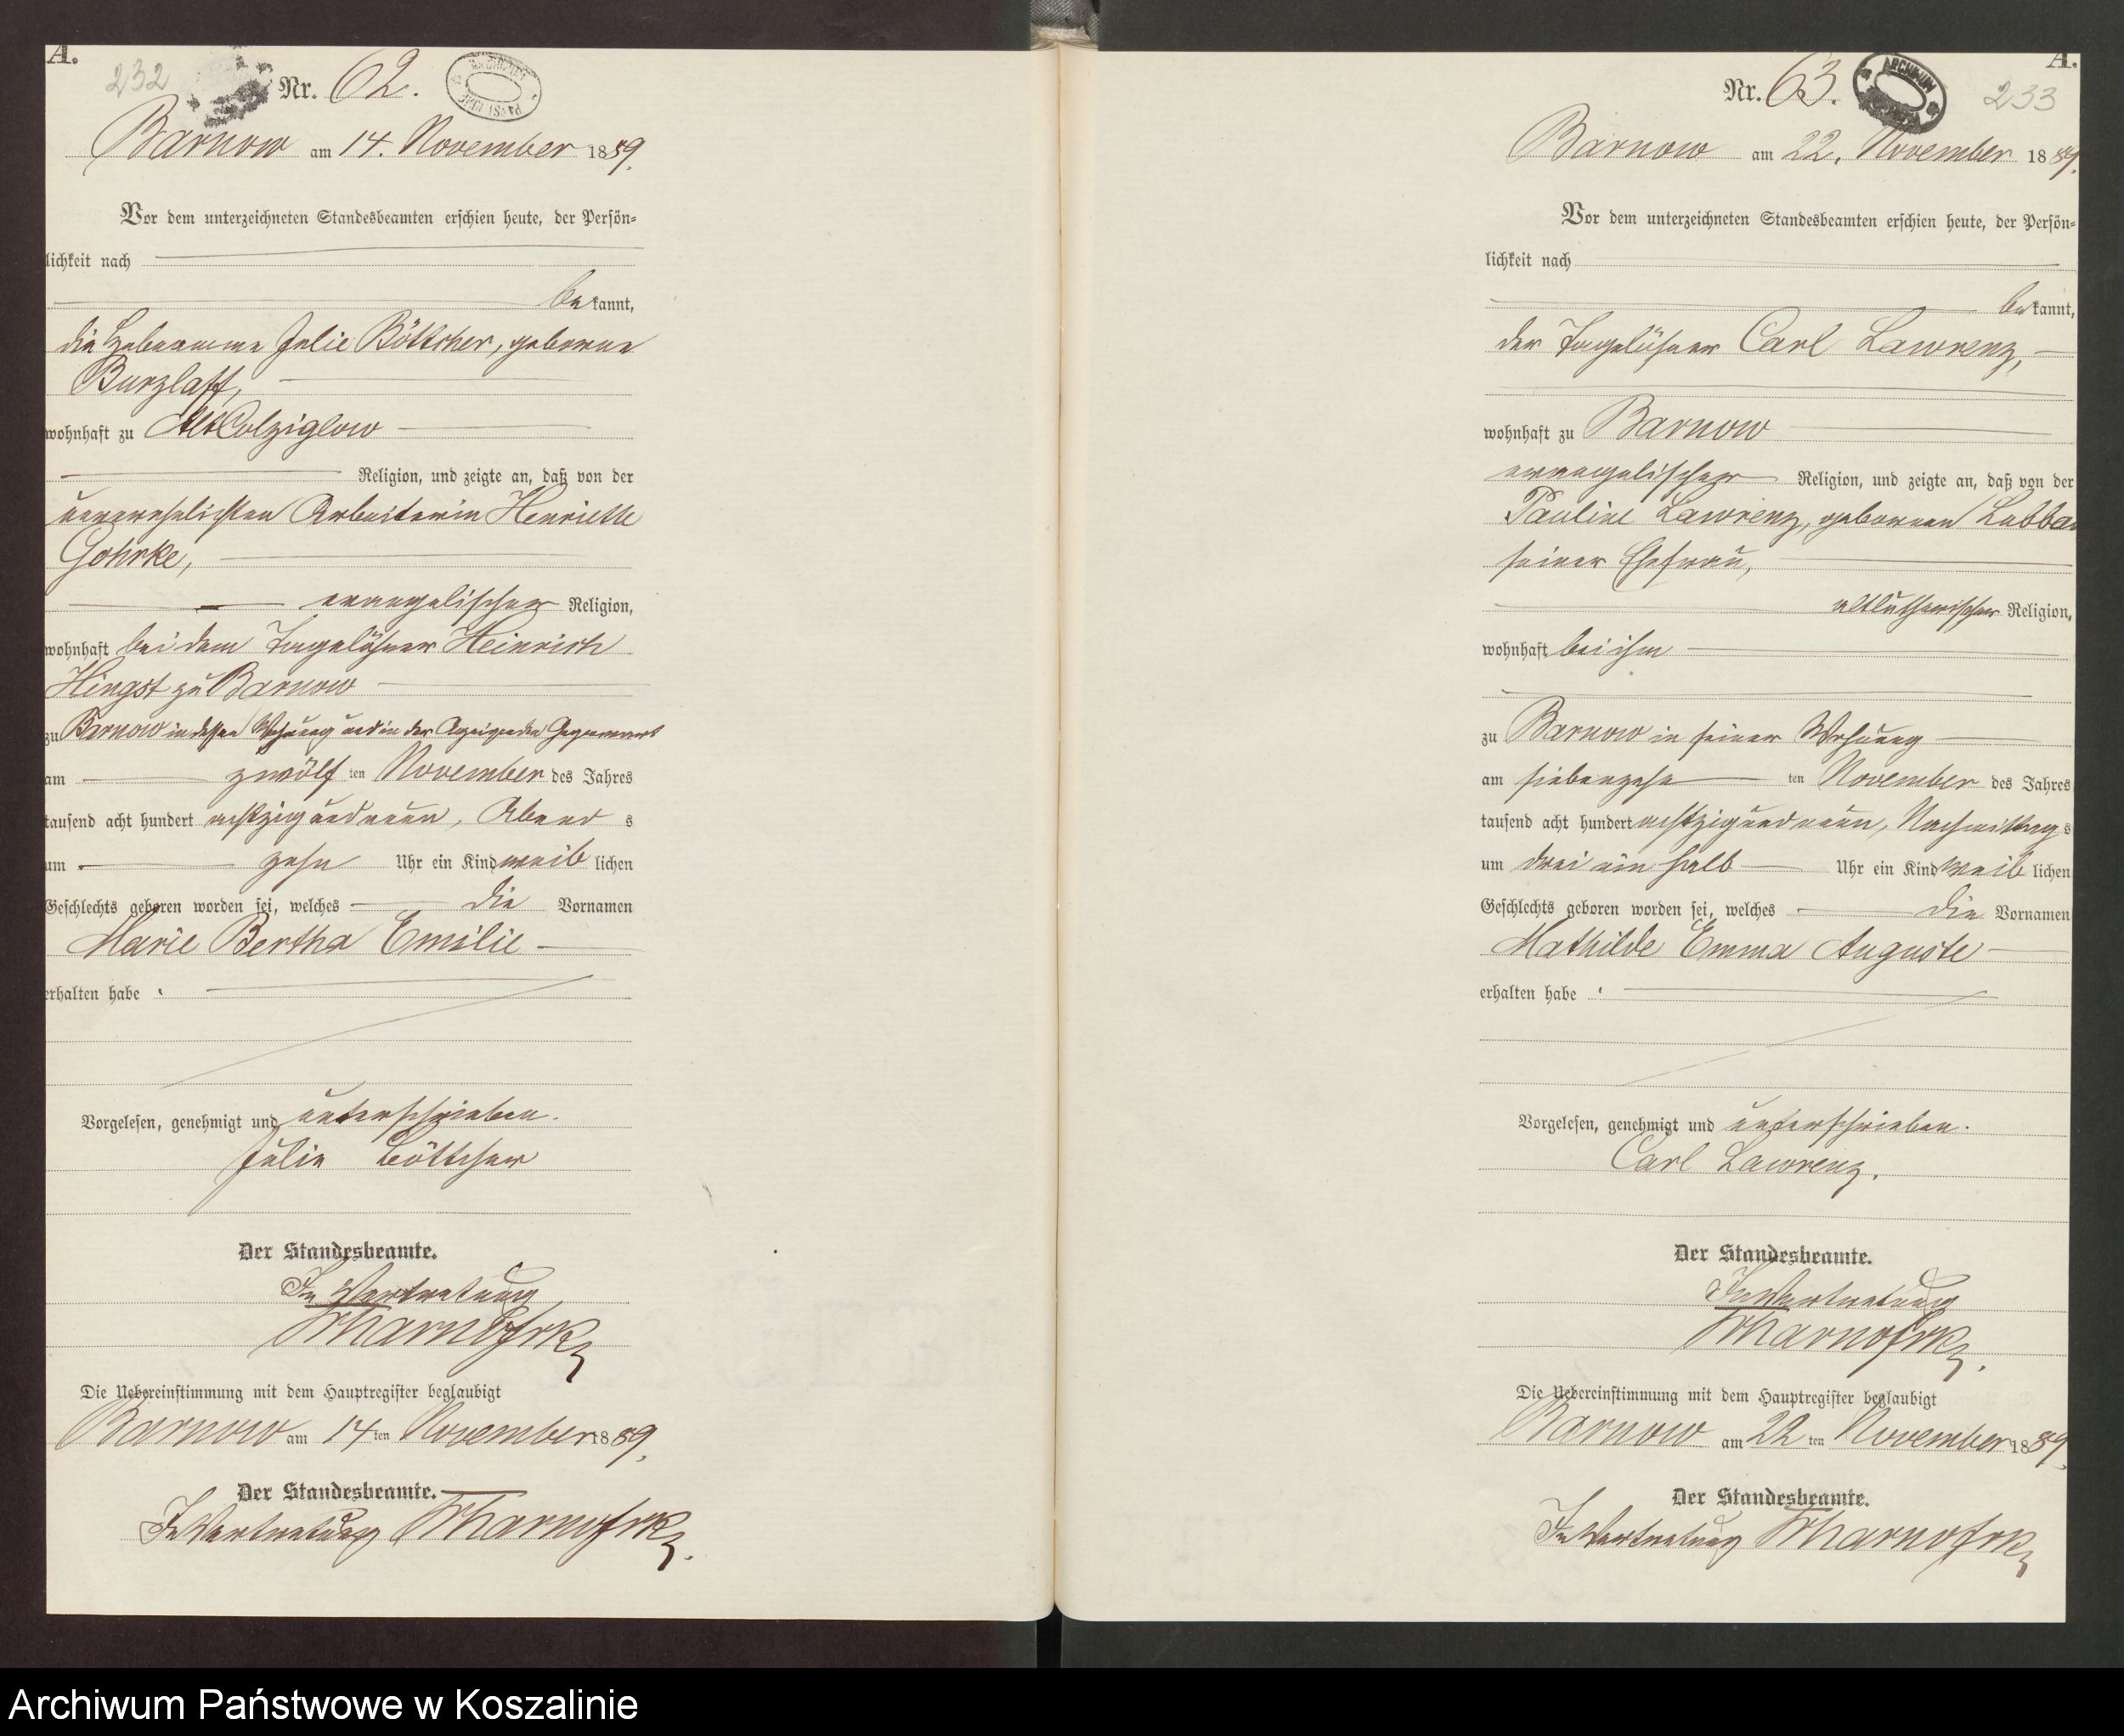 A.
232
Nr. 62.
Barnow am 14. November 1889.
Vor dem unterzeichneten Standesbeamten erschien heute, der Persön-
lichkeit nach
bekannt,
die Hebeamme Julie Böttcher, geborene
Burzlaff,
wohnhaft zu Alt Colziglow
Religion, und zeigte an, daß von der
unverehelichten Arbeiterin Henriette
Gohrke,
evangelischer Religion,
wohnhaft bei dem Tagelöhner Heinrich
Hingst zu Barnow
zu Barnow in dessen Wohnung und in der Anzeigenden Gegenwart
am zwölf ten November des Jahres
tausend acht hundert achtzig und neun, Abend s
um zehn Uhr ein Kind weib lichen
Geschlechts geboren worden sei, welches die Vornamen
Marie Bertha Emilie
erhalten habe.
Vorgelesen, genehmigt und unterschrieben.
Julie Böttcher
Der Standesbeamte.
In Vertretung
Die Uebereinstimmung mit dem Hauptregister beglaubigt
Barnow am 14 ten November 1889.
Der Standesbeamte.
In Vertretung
A.
Nr. 63.
ARCHIWUM
233
Barnow am 22. November 1889.
Vor dem unterzeichneten Standesbeamten erschien heute, der Persön-
lichkeit nach
bekannt,
der Tagelöhner Carl Lawrenz,
wohnhaft zu Barnow
evangelischer Religion, und zeigte an, daß von der
Pauline Lawrenz, geborenen
seiner Ehefrau,
altlutherischer Religion,
wohnhaft bei ihm
zu Barnow in seiner Wohnung
am siebenzehn ten November des Jahres
tausend acht hundert achtzig und neun, Nachmittag s
um drei ein halb Uhr ein Kind weib lichen
Geschlechts geboren worden sei, welches die Vornamen
Mathilde Emma Auguste
erhalten habe.
Vorgelesen, genehmigt und unterschrieben.
Carl Lawrenz.
Der Standesbeamte.
In Vertretung
Die Uebereinstimmung mit dem Hauptregister beglaubigt
Barnow am 22 ten November 1889.
Der Standesbeamte.
In Vertretung
Archiwum Państwowe w Koszalinie